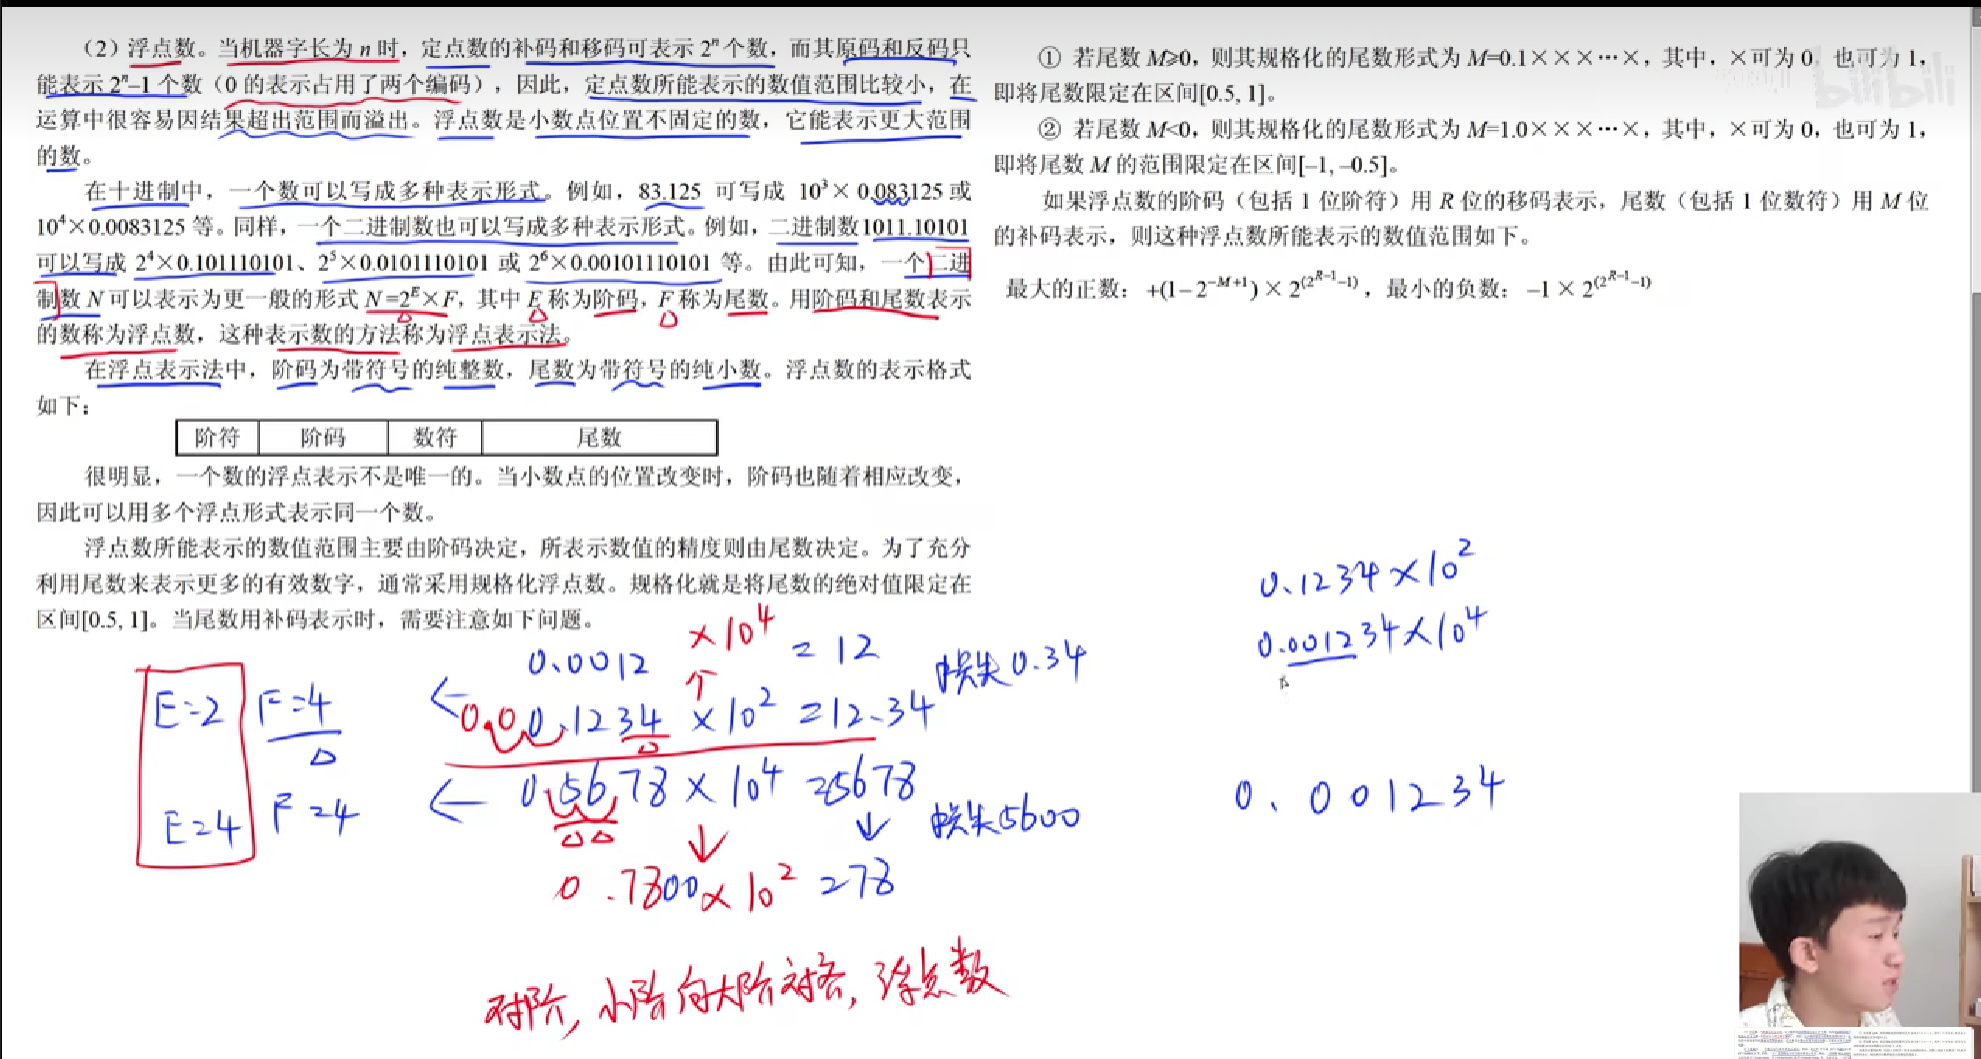 （2）浮点数。当机器字长为 n 时，定点数的补码和移码可表示 2ⁿ 个数，而其原码和反码只
能表示 2ⁿ–1 个数（0 的表示占用了两个编码），因此，定点数所能表示的数值范围比较小，在
运算中很容易因结果超出范围而溢出。浮点数是小数点位置不固定的数，它能表示更大范围
的数。
在十进制中，一个数可以写成多种表示形式。例如，83.125 可写成 10³×0.083125 或
10⁴×0.0083125 等。同样，一个二进制数也可以写成多种表示形式。例如，二进制数 1011.10101
可以写成 2⁴×0.101110101、2⁵×0.0101110101 或 2⁶×0.00101110101 等。由此可知，一个二进
制数 N 可以表示为更一般的形式 N=2ᴱ×F，其中 E 称为阶码，F 称为尾数。用阶码和尾数表示
的数称为浮点数，这种表示数的方法称为浮点表示法。
在浮点表示法中，阶码为带符号的纯整数，尾数为带符号的纯小数。浮点数的表示格式
如下：
阶符 阶码 数符 尾数
很明显，一个数的浮点表示不是唯一的。当小数点的位置改变时，阶码也随着相应改变，
因此可以用多个浮点形式表示同一个数。
浮点数所能表示的数值范围主要由阶码决定，所表示数值的精度则由尾数决定。为了充分
利用尾数来表示更多的有效数字，通常采用规格化浮点数。规格化就是将尾数的绝对值限定在
区间[0.5, 1]。当尾数用补码表示时，需要注意如下问题。
① 若尾数 M≥0，则其规格化的尾数形式为 M=0.1×××…×，其中，×可为 0，也可为 1，
即将尾数限定在区间[0.5, 1]。
② 若尾数 M<0，则其规格化的尾数形式为 M=1.0×××…×，其中，×可为 0，也可为 1，
即将尾数 M 的范围限定在区间[–1, –0.5]。
如果浮点数的阶码（包括 1 位阶符）用 R 位的移码表示，尾数（包括 1 位数符）用 M 位
的补码表示，则这种浮点数所能表示的数值范围如下。
最大的正数：+(1–2^(–M+1))×2^(2^(R–1)–1)，最小的负数：–1×2^(2^(R–1)–1)
bilibili
0.0012 ×10⁴ = 12
E=2 F=4
0.00.1234 ×10² =12.34 损失0.34
E=4 F=4
0.5678 × 10⁴ =5678
损失5600
0.7800×10² =78
对阶，小阶向大阶对齐，浮点数
0.1234×10²
0.001234×10⁴
0.001234